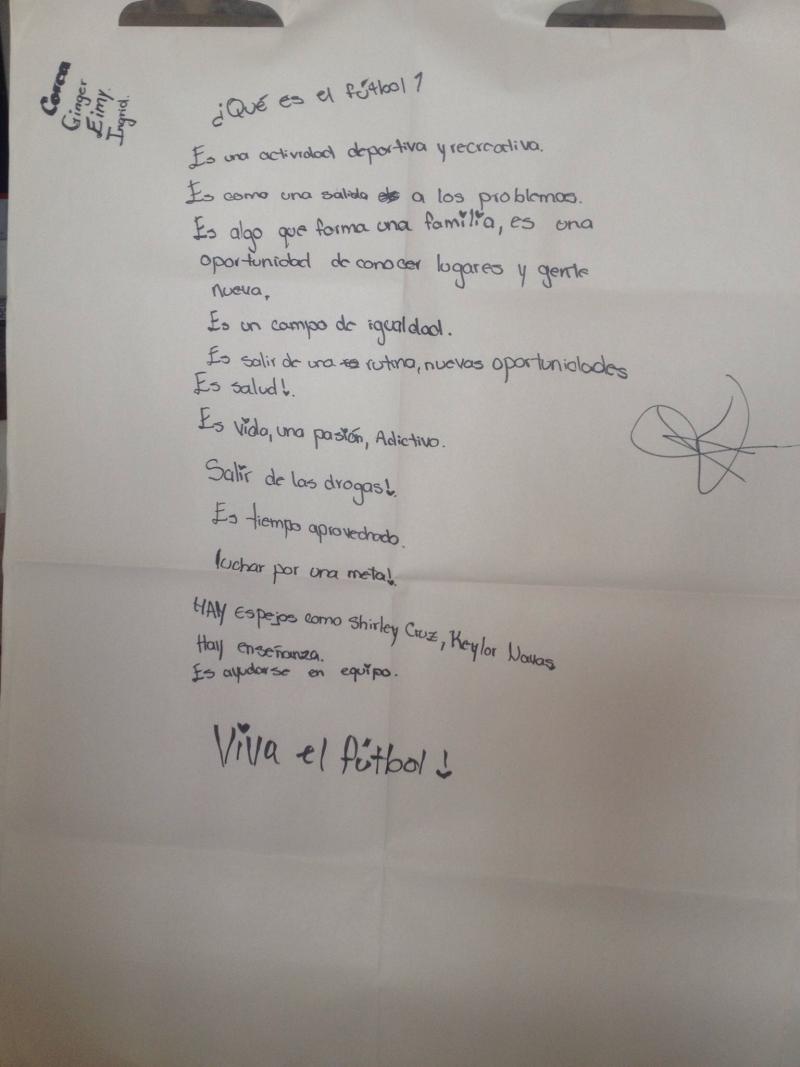 Corea
Ginger
Eimy.
Ingrid.
¿Qué es el fútbol?
Es una actividad deportiva y recreativa.
Es como una salida a los problemas.
Es algo que forma una familia, es una
oportunidad de conocer lugares y gente
nueva,
Es un campo de igualdad.
Es salir de una rutina, nuevas oportunidades
Es salud!.
Es vida, una pasión, Adictivo.
Salir de las drogas!.
Es tiempo aprovechado.
luchar por una meta!.
HAY espejos como Shirley Cruz, Keylor Navas
Hay enseñanza.
Es ayudarse en equipo.
Viva el fútbol!